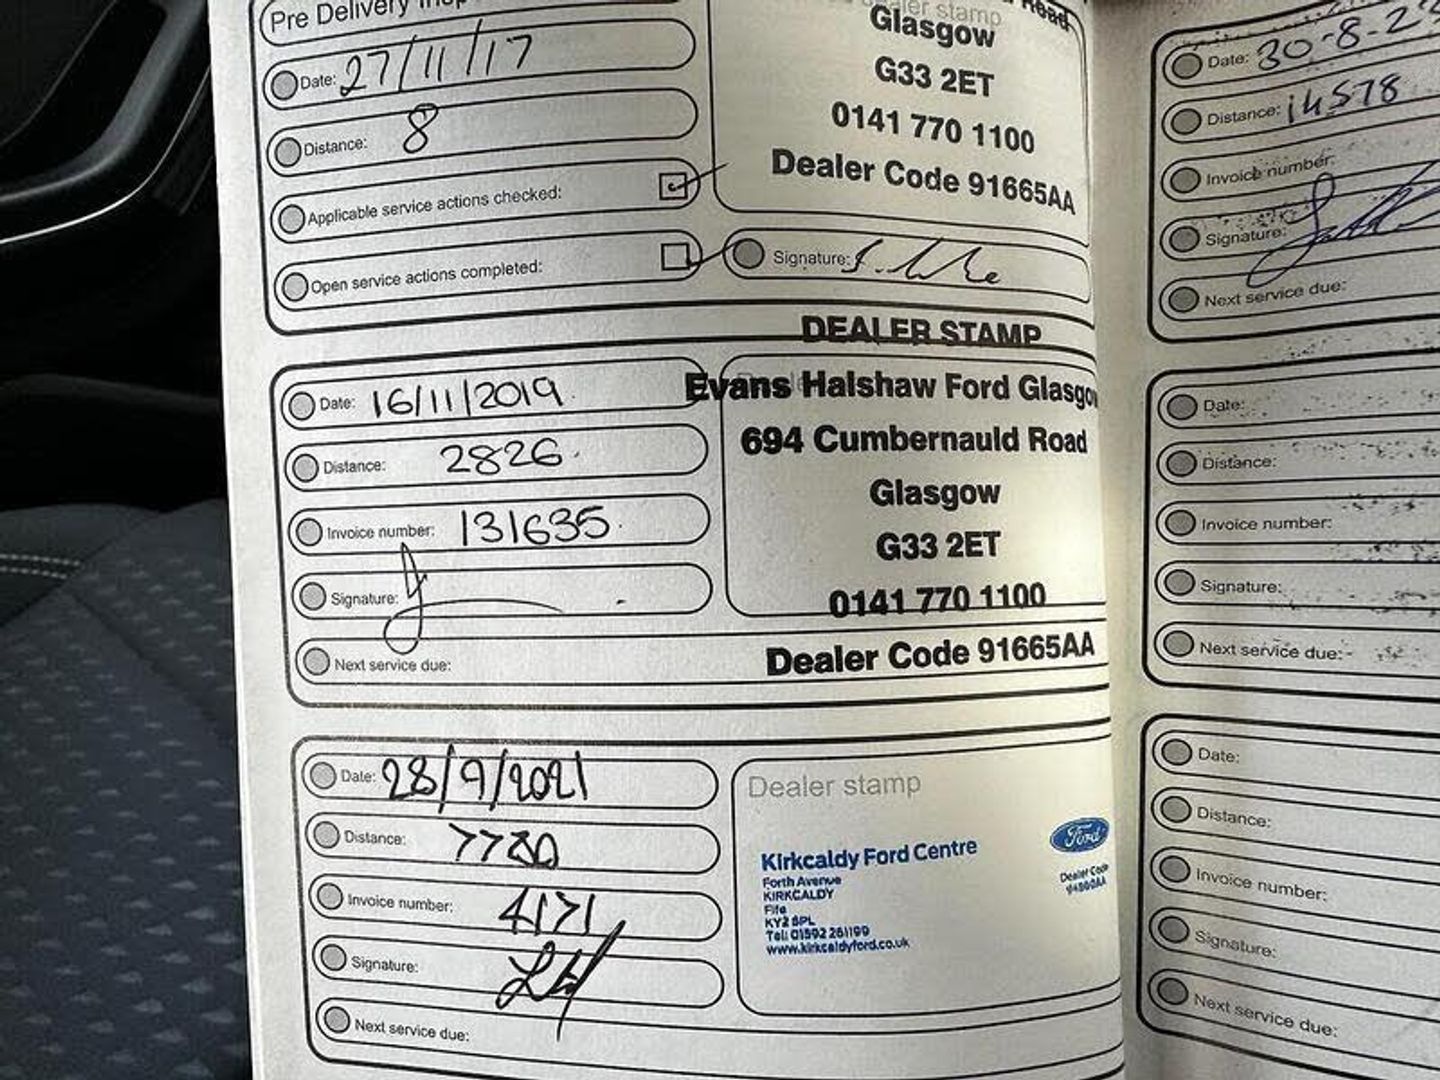 Pre Delivery
Date: 27/11/17
Distance: 8
Applicable service actions checked:
Open service actions completed:
Dealer stamp
Road
Glasgow
G33 2ET
0141 770 1100
Dealer Code 91665AA
Signature:
DEALER STAMP
Date: 16/11/2019
Distance: 2826
Invoice number: 131635
Signature:
Next service due:
Evans Halshaw Ford Glasgow
694 Cumbernauld Road
Glasgow
G33 2ET
0141 770 1100
Dealer Code 91665AA
Date: 28/9/2021
Distance: 7780
Invoice number: 4171
Signature:
Next service due:
Dealer stamp
Kirkcaldy Ford Centre
Forth Avenue
KIRKCALDY
Fife
KY2 5PL
Tel: 01592 261199
www.kirkcaldyford.co.uk
Ford
Dealer Code
Date: 30-8-2
Distance: 14578
Invoice number:
Signature:
Next service due:
Date:
Distance:
Invoice number:
Signature:
Next service due:
Date:
Distance:
Invoice number:
Signature:
Next service due: